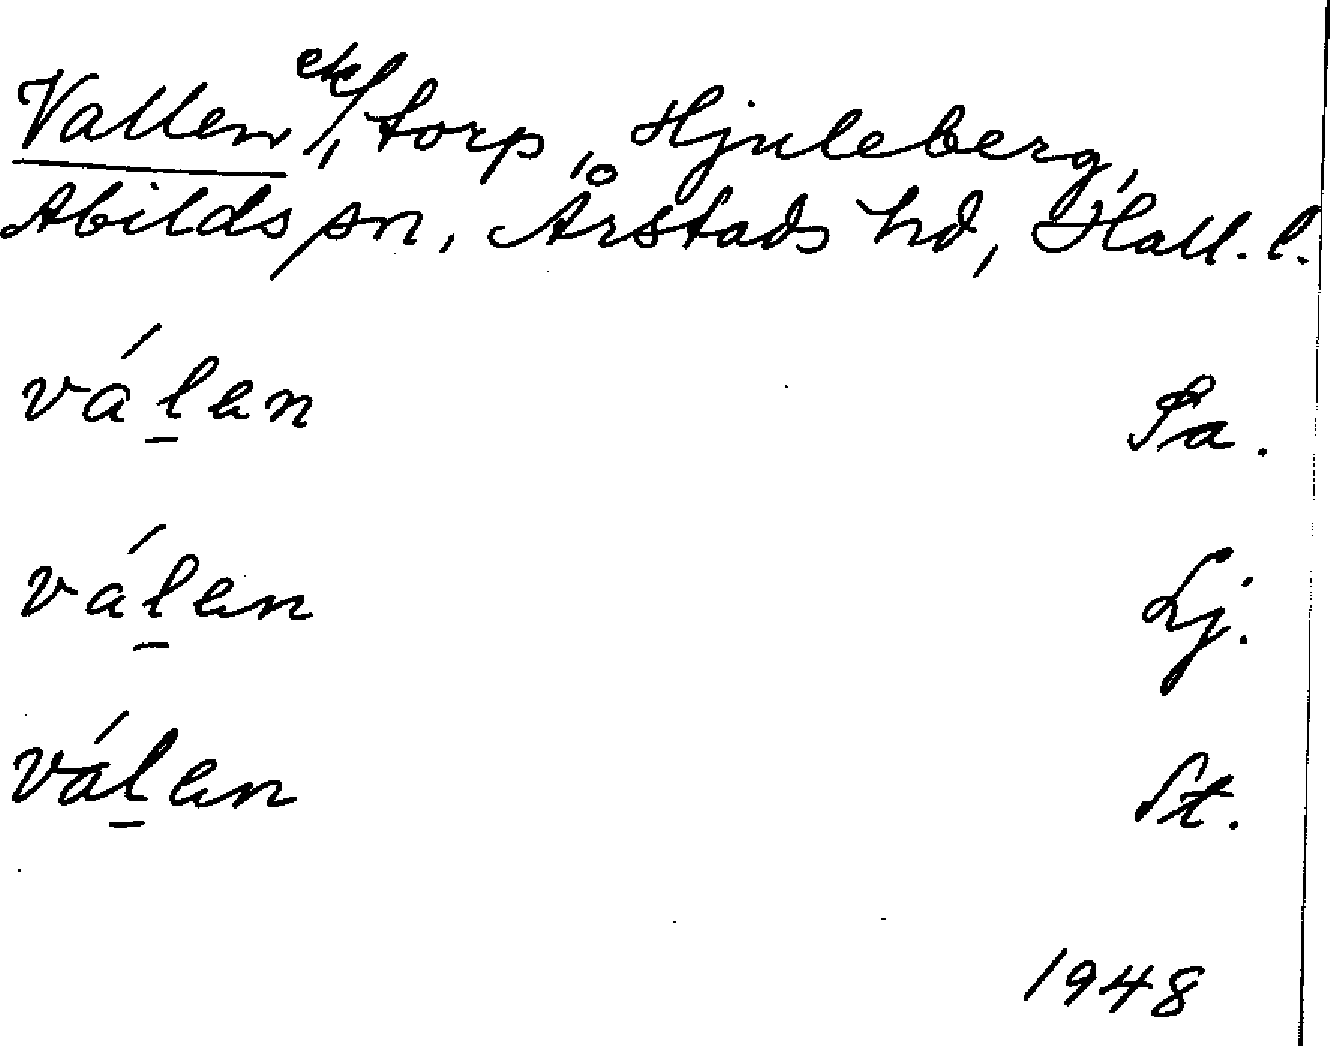 Vallen ek/, torp, Hjuleberg,
Abilds sn, Årstads hd, Hall. l.
válen Pa.
válen Lj.
válen St.
1948